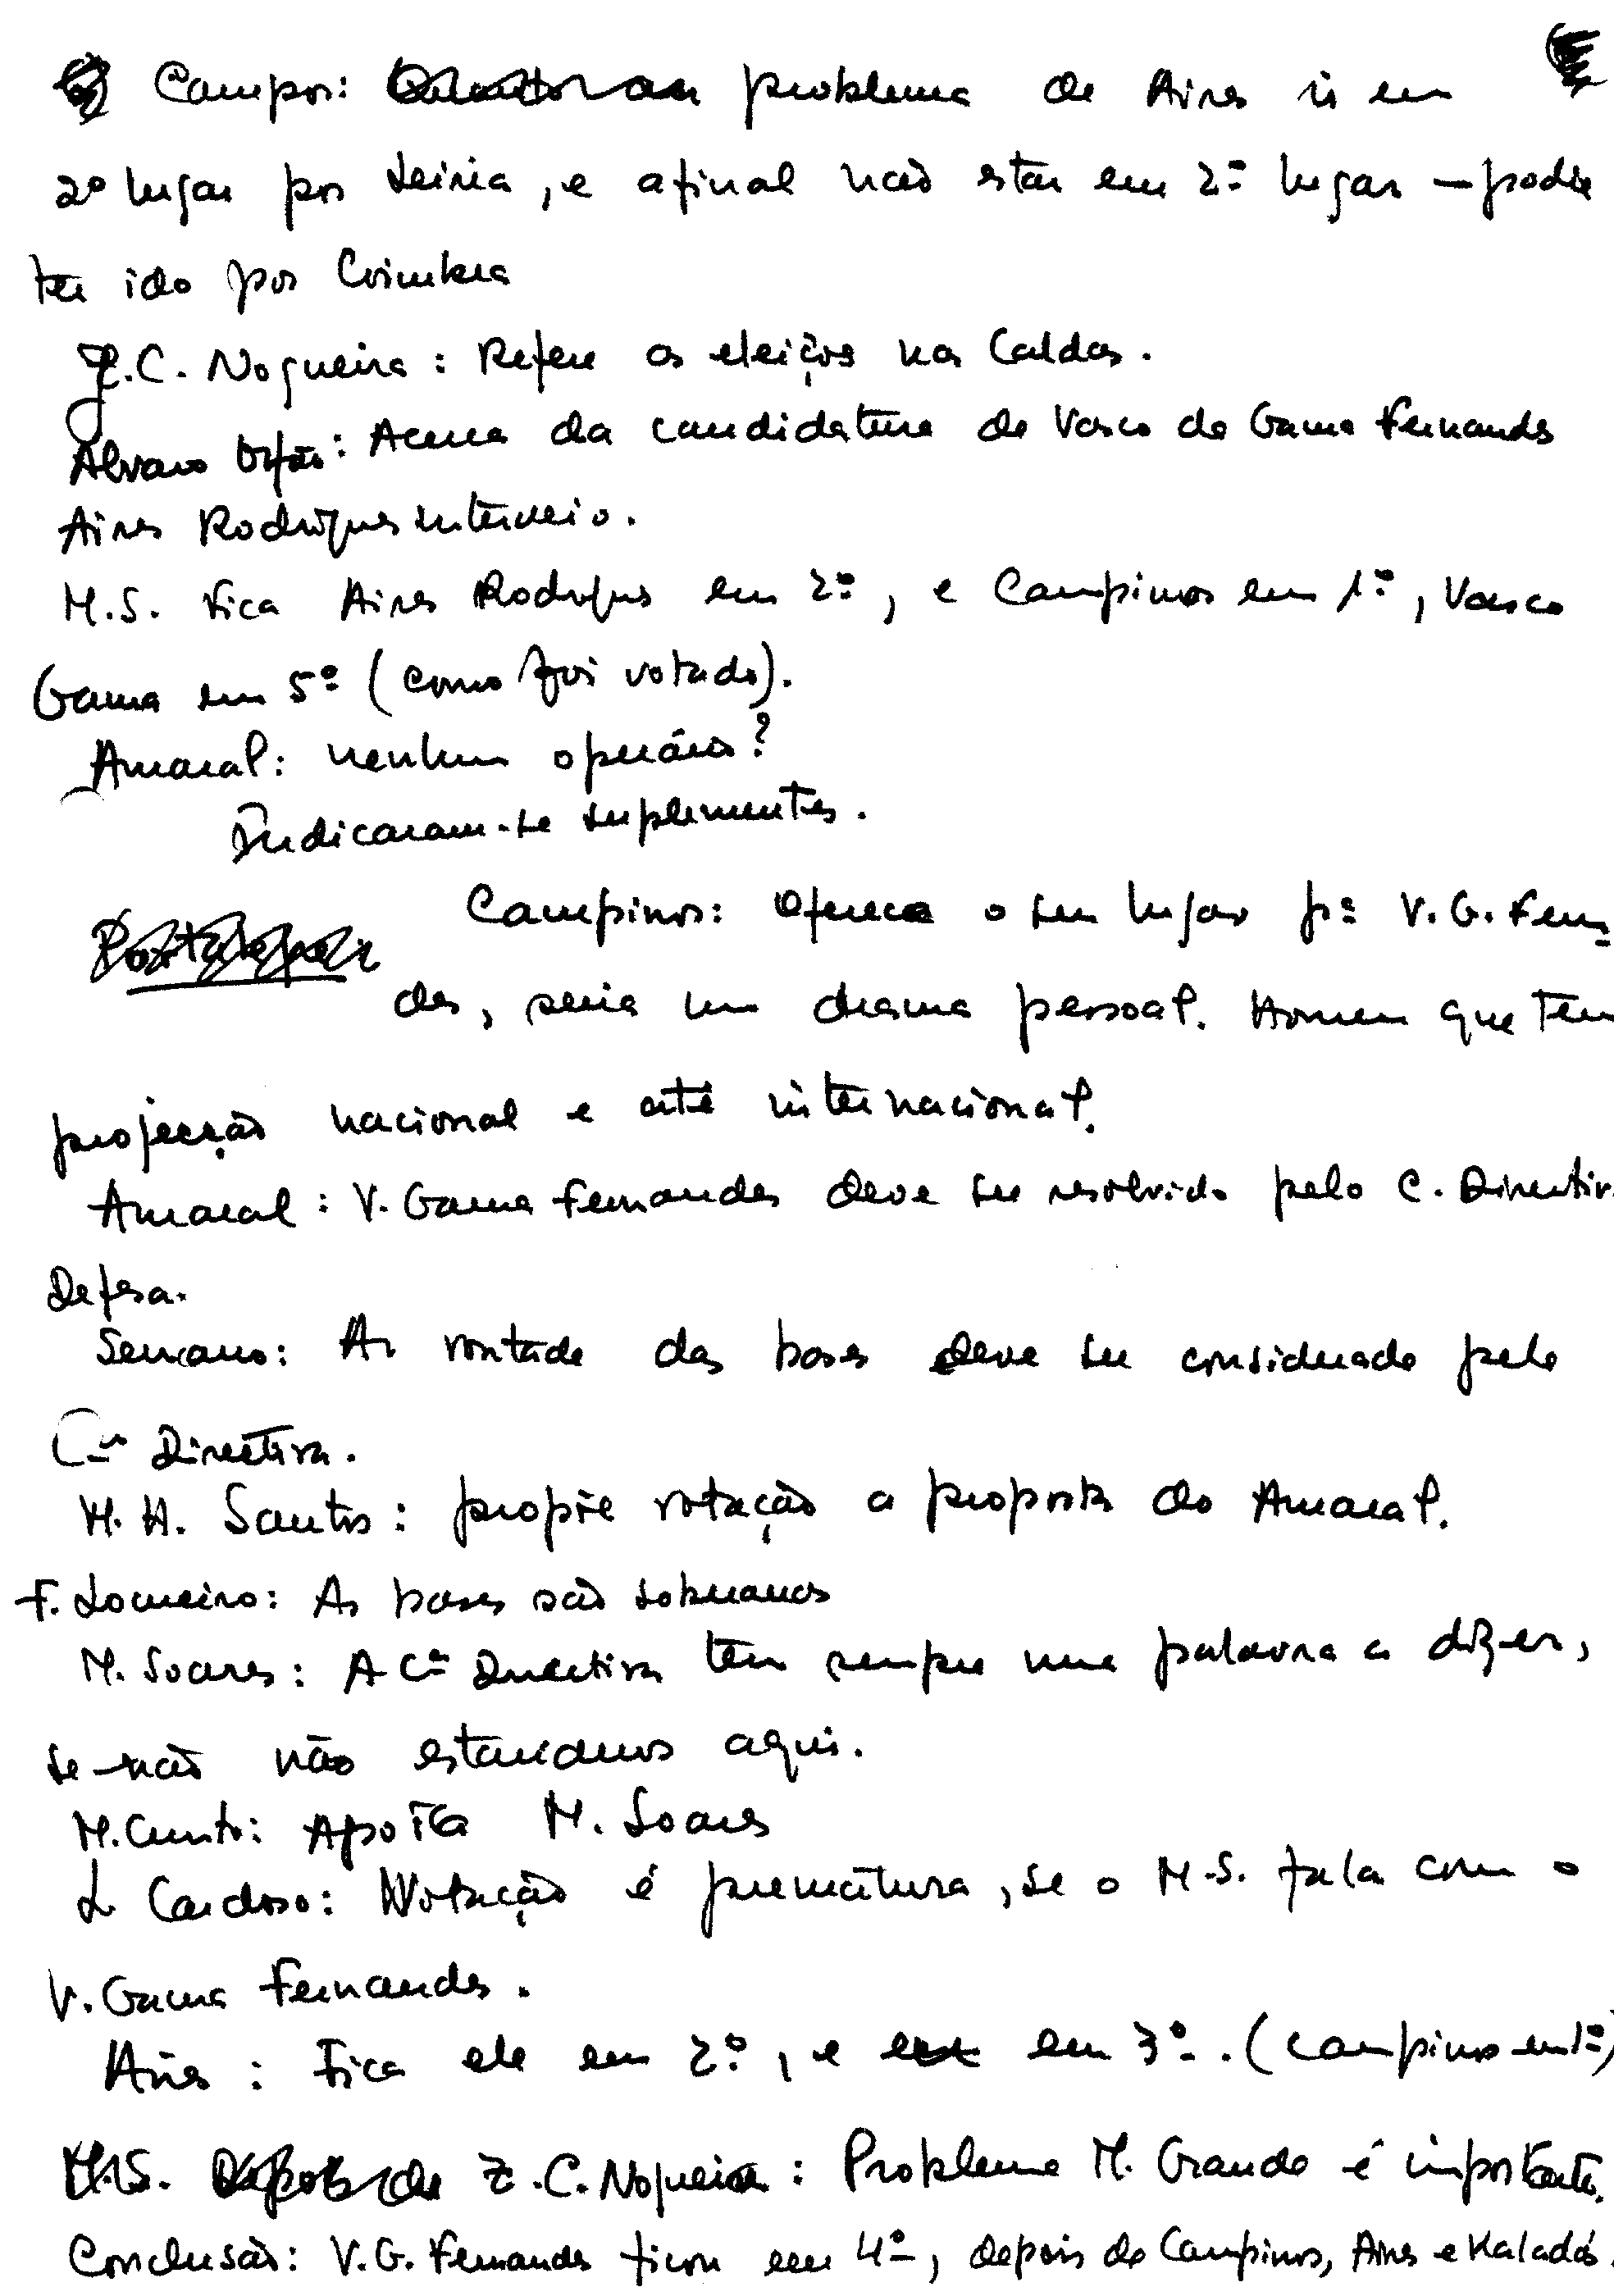 Campos: problema de Aires ir em
2º lugar por Leiria, e afinal não estar em 2º lugar - podia
ter ido por Coimbra
J.C. Nogueira: Refere as eleições nas Caldas.
Alvaro Orfão: Acerca da candidatura de Vasco da Gama Fernandes
Aires Rodrigues interveio.
M.S. Fica Aires Rodrigues em 2º, e Campinos em 1º, Vasco
Gama em 5º (como foi votado).
Amaral: nenhum operário?
Indicaram-se suplementes.
Campinos: oferece o seu lugar pª V.G. Fernan
des, seria um drama pessoal. Homem que tem
projecção nacional e até internacional.
Amaral: V. Gama Fernandes deve ser resolvido pelo C. Directiv.
Defesa.
Serrano: A vontade das bases deve ser considerada pela
Cº Directiva.
M.A. Santos: propõe votação a proposta do Amaral.
F. Loureiro: As bases são soberanas
M. Soares: A Cº Directiva tem sempre uma palavra a dizer,
se-não não estaríamos aqui.
M. : Apoia M. Soares
L Cardoso: Votação é prematura, se o M.S. fala com o
V. Gama Fernandes.
Aires: Fica ele em 2º, e em 3º. (Campinos em 1º)
M.S. Z.C. Nogueira: Problema M. Grande é importante.
Conclusão: V.G. Fernandes ficou em 4º, depois de Campinos, Aires e Kalidás.